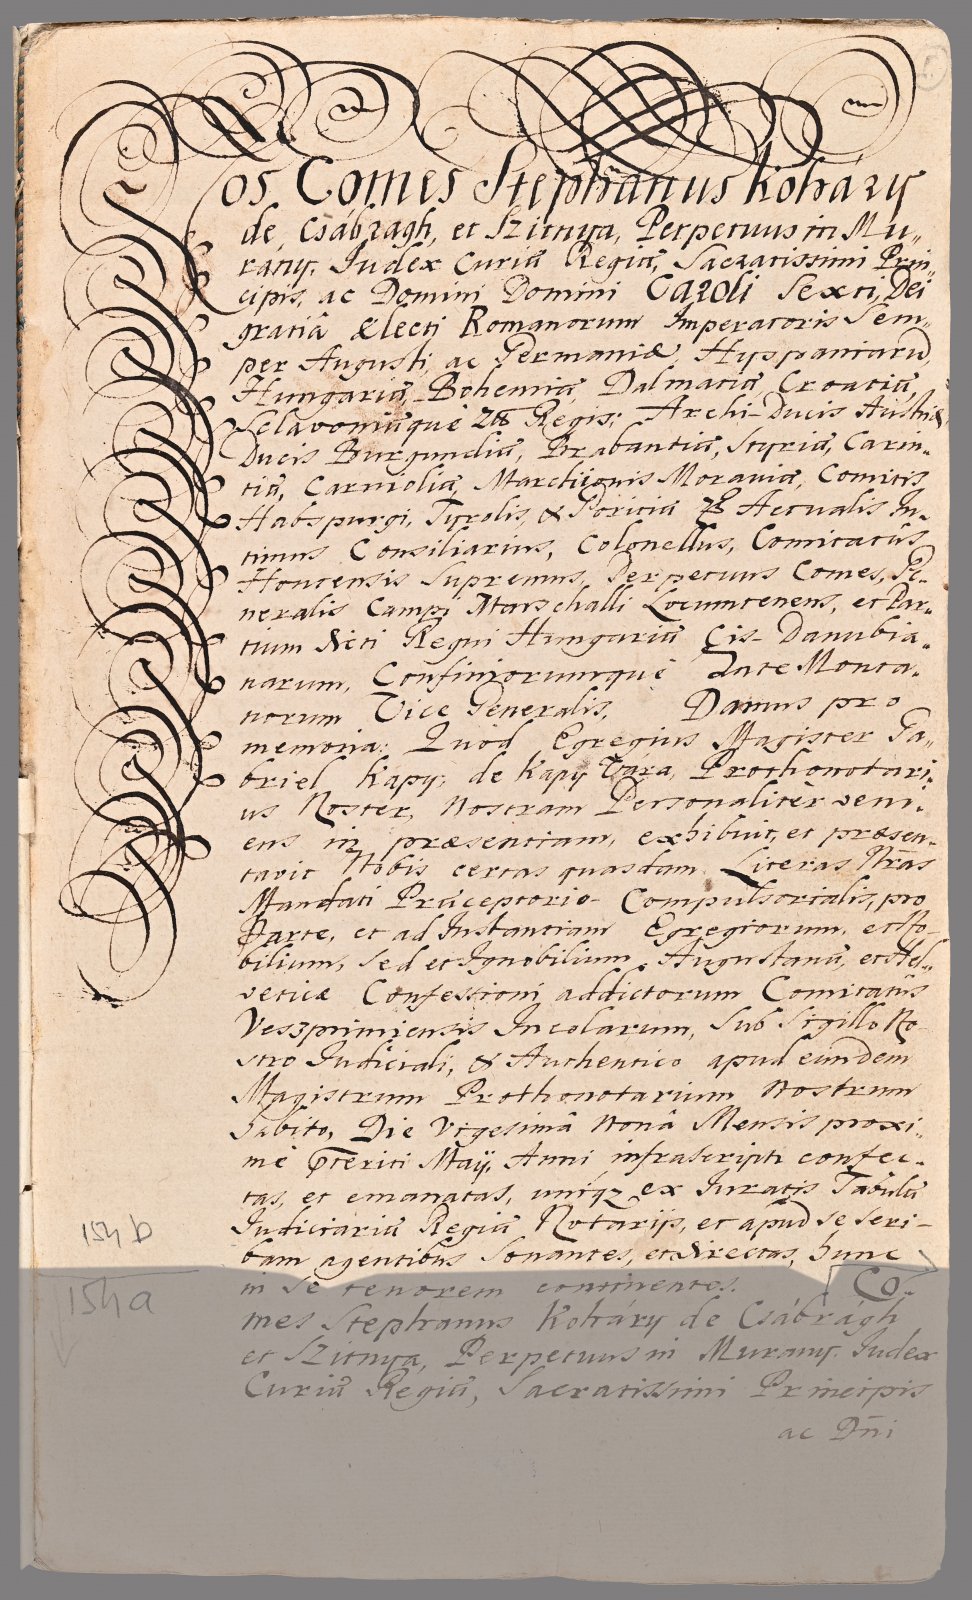 Nos Comes Stephanus Koháry
de Csábragh, et Szitnya, Perpetuus in Mu-
rány, Judex Curiæ Regiæ, Sacratissimi Prin-
cipis, ac Domini Domini Caroli Sexti, Dei
gratiâ Electi Romanorum Imperatoris Sem-
per Augusti, ac Germaniæ, Hyspaniarũ,
Hungariæ, Bohemiæ, Dalmatiæ, Croatiæ,
Sclavoniæque Regis; Archi-Ducis Austriæ,
Ducis Burgundiæ, Brabantiæ, Styriæ, Carin-
tiæ, Carnioliæ, Marchionis Moraviæ, Comitis
Habspurgi, Tyrolis, & Goritiæ Actualis In-
timus Consiliarius, Colonellus, Comitatûs
Hontensis Supremus, Perpetuus Comes, Ge-
neralis Campi Marschalli Locumtenens, et Par-
tium dicti Regni Hungariæ Cis-Danubia-
narum, Confiniorumque Antemonta-
norum Vice Generalis. Damus pro
memoria: Quod Egregius Magister Ga-
briel Kapy, de Kapy Vára, Prothonotari-
us Noster, Nostram Personaliter veni-
ens in præsentiam, exhibuit, et præsen-
tavit Nobis certas quasdam Literas Nr̃as
Mandati Præceptorio-Compulsorialis, pro
Parte, et ad Instantiam Egregiorum, et No-
bilium, Sed et Ignobilium Augustanæ, et Hel-
veticæ Confessioni addictorum Comitatûs
Veszprimiensis Incolarum, Sub Sigillo No-
stro Judiciali, & Authentico apud eundem
Magistrum Prothonotarium Nostrum
habito, Die Vigesimâ Nonâ Mensis proxi-
mè p̃teriti Maij, Anni infrascripti confec-
tas, et emanatas, uniqz ex Juratis Tabulæ
Judiciariæ Regiæ Notarijs, et apud se scri-
bam agentibus Sonantes, et directas, hunc
in se tenorem continentes. Co-
mes Stephanus Koháry de Csábrágh
et Szitnya, Perpetuus in Murany, Judex
Curiæ Regiæ, Sacratissimi Principis
ac Dñi
154 b
154 a